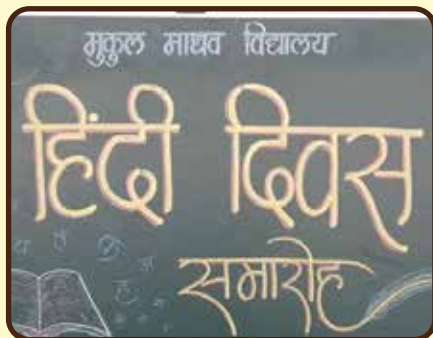 मुकुल माधव विद्यालय
हिंदी दिवस
समारोह